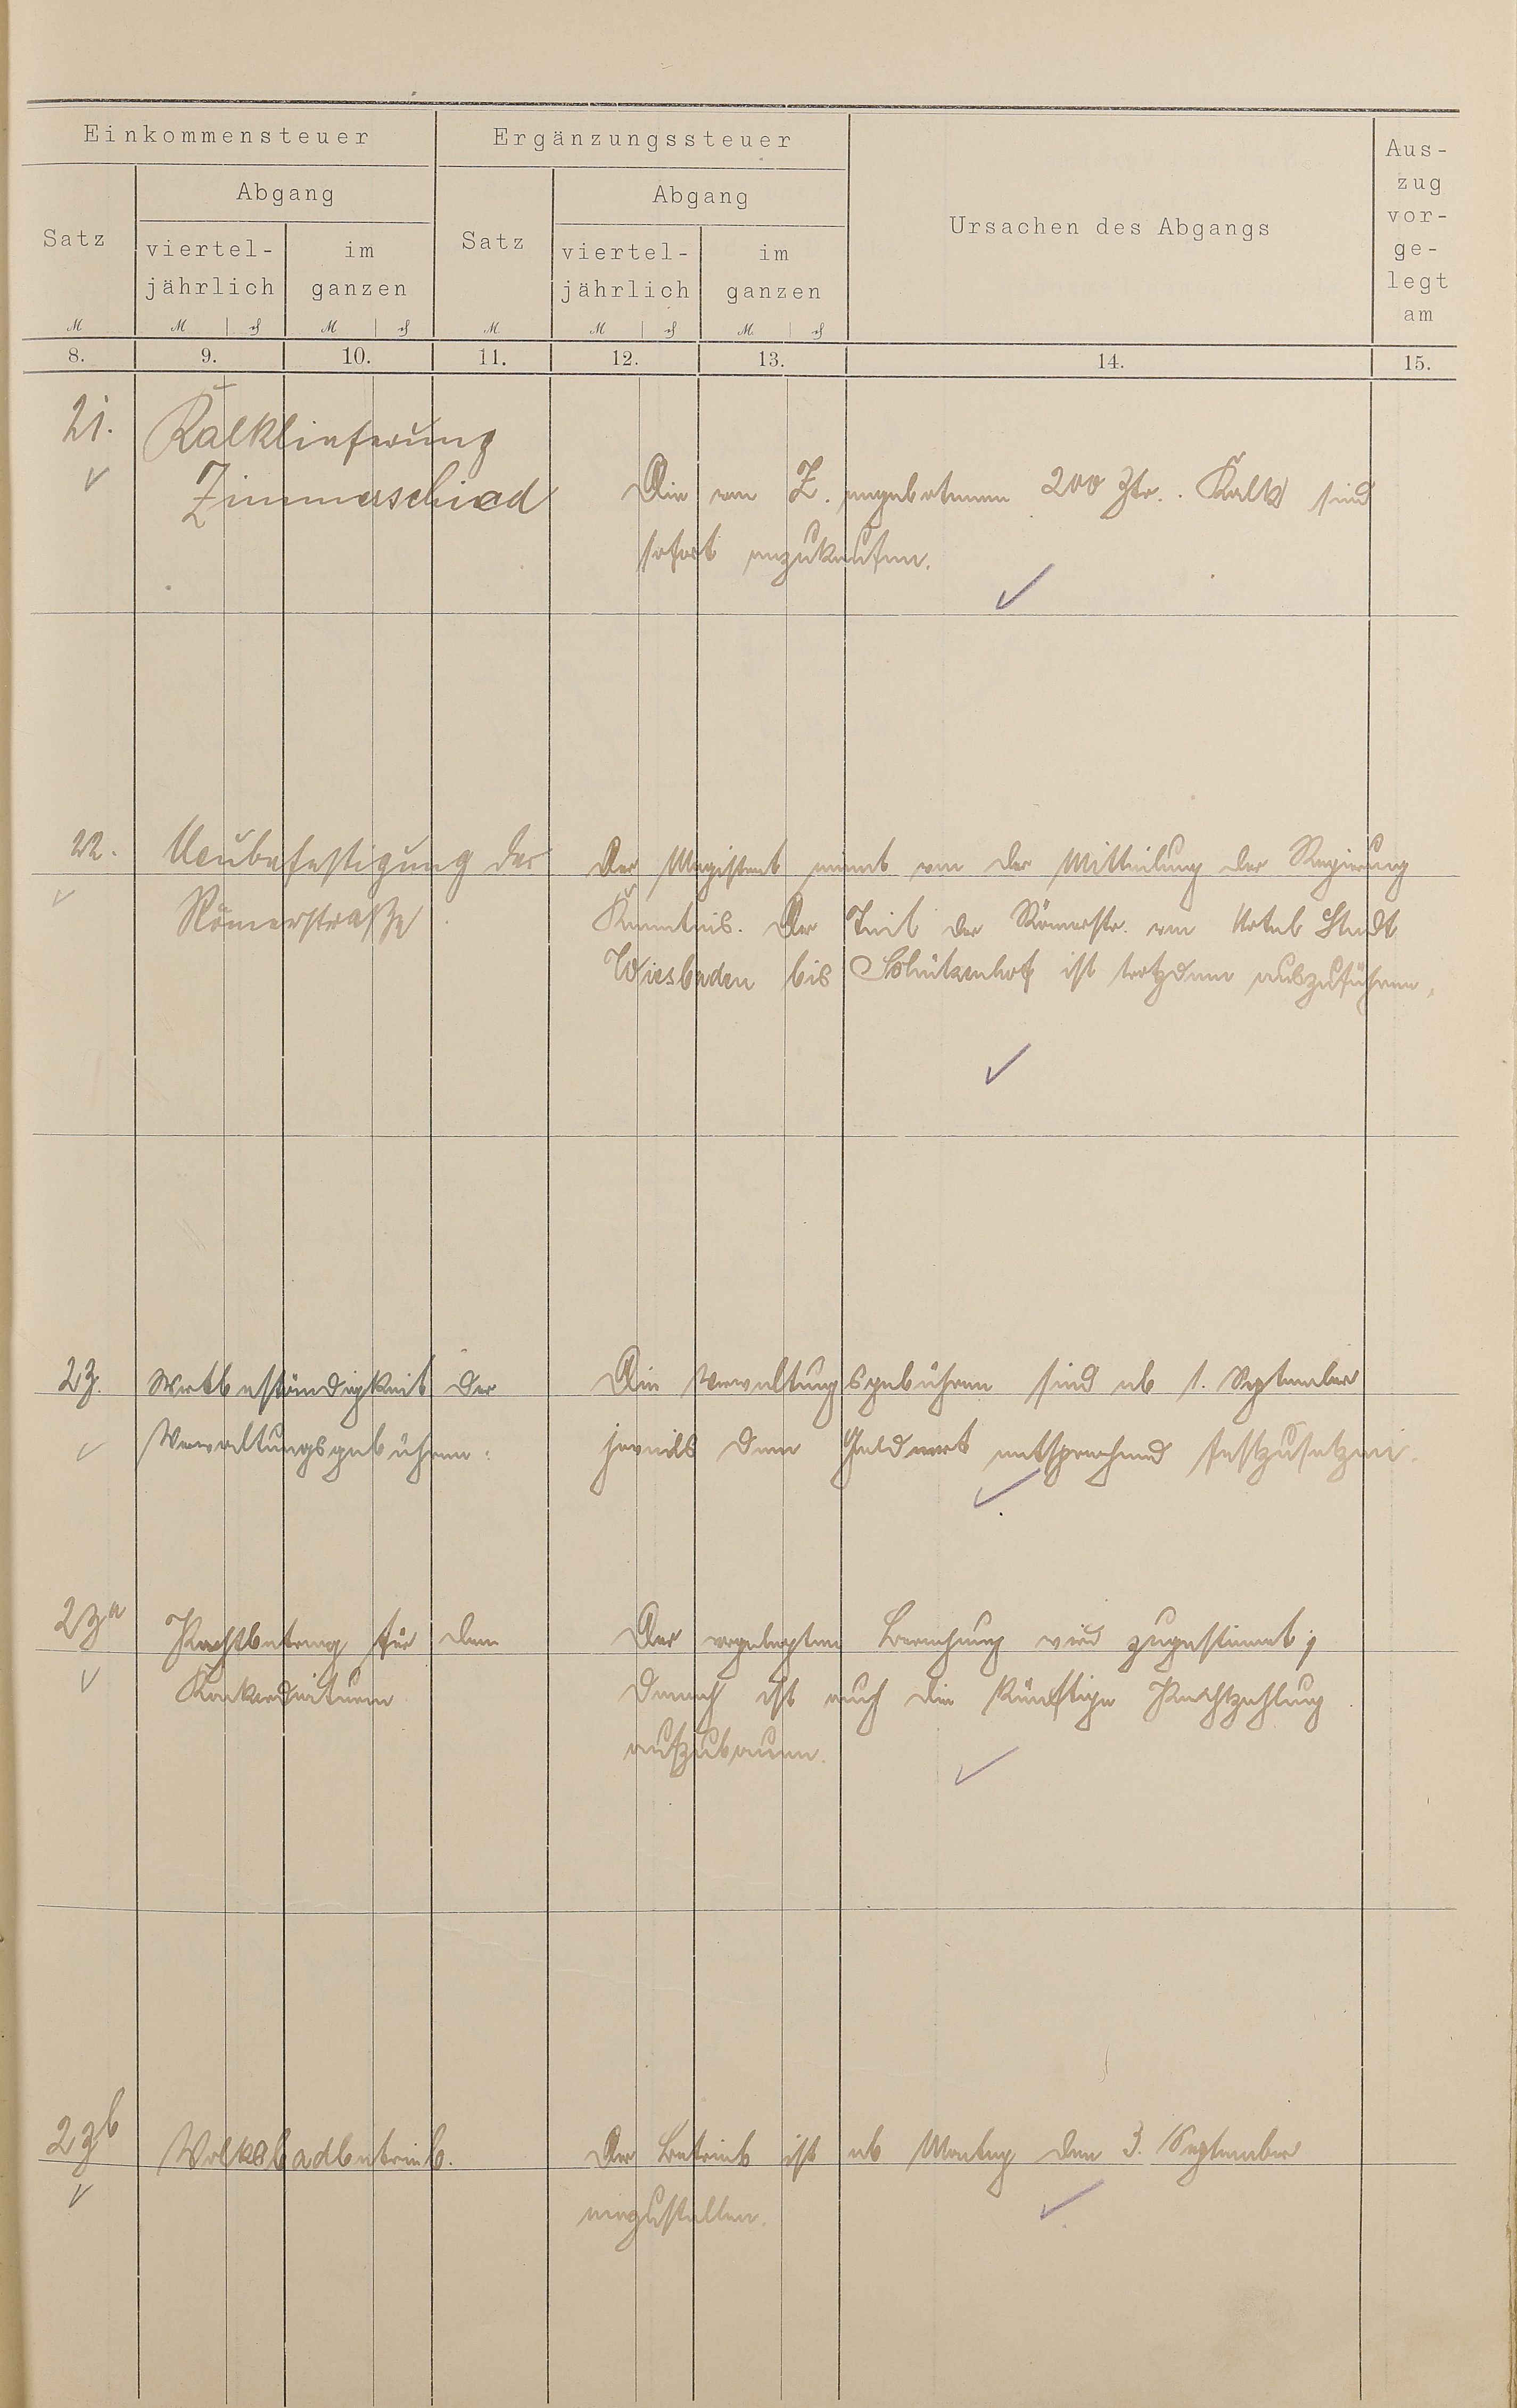 Einkommensteuer
Ergänzungssteuer
Ursachen des Abgangs
Aus-
zug
vor-
ge-
legt
am
Satz
Abgang
viertel-
jährlich
im
ganzen
Satz
Abgang
viertel-
jährlich
im
ganzen
M M ₰ M ₰ M M ₰ M ₰
8. 9. 10. 11. 12. 13. 14. 15.
21. Kalklieferung
Zimmerschied
Die von Z. angebotenen 200 Ztr. Kalk sind
sofort anzukaufen.
22. Neubefestigung der
Römerstraße
Der Magistrat nimmt von der Mitteilung der Regierung
Kenntnis. Der Teil der Römerstr. von Hotel Stadt
Wiesbaden bis Schützenhof ist trotzdem auszuführen.
23. Wertbeständigkeit der
Verwaltungsgebühren.
Die Verwaltungsgebühren sind ab 1. September
jeweils dem Geldwert entsprechend festzusetzen.
23a Pachtbetrag für den
Konkordiaturm
Der vorgelegten Berechnung wird zugestimmt;
danach ist auch die künftige Pachtzahlung
aufzubauen.
23b Volksbadbetrieb.
Der Betrieb ist ab Montag den 3. September
einzustellen.